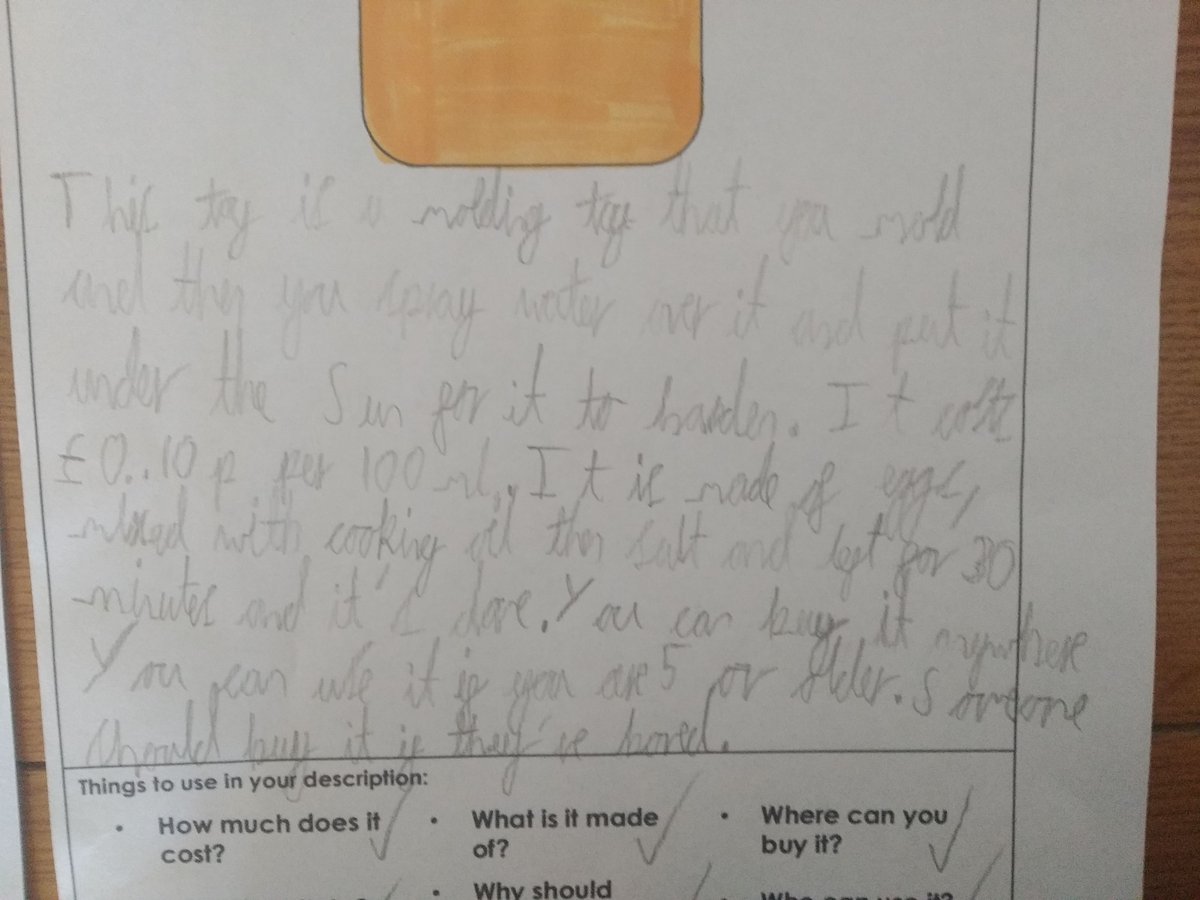 This toy is a molding toy that you mold
and then you spray water over it and put it
under the Sun for it to harden. It cost
£0..10 p per 100 ml.. It is made of eggs,
mixed with cooking oil then salt and left for 30
minutes and it's done. You can buy it anywhere
You can use it if you are 5 or older. Someone
should buy it if they're bored.
Things to use in your description:
• How much does it cost?
• What is it made of?
• Where can you buy it?
• Why should
Who can use it?